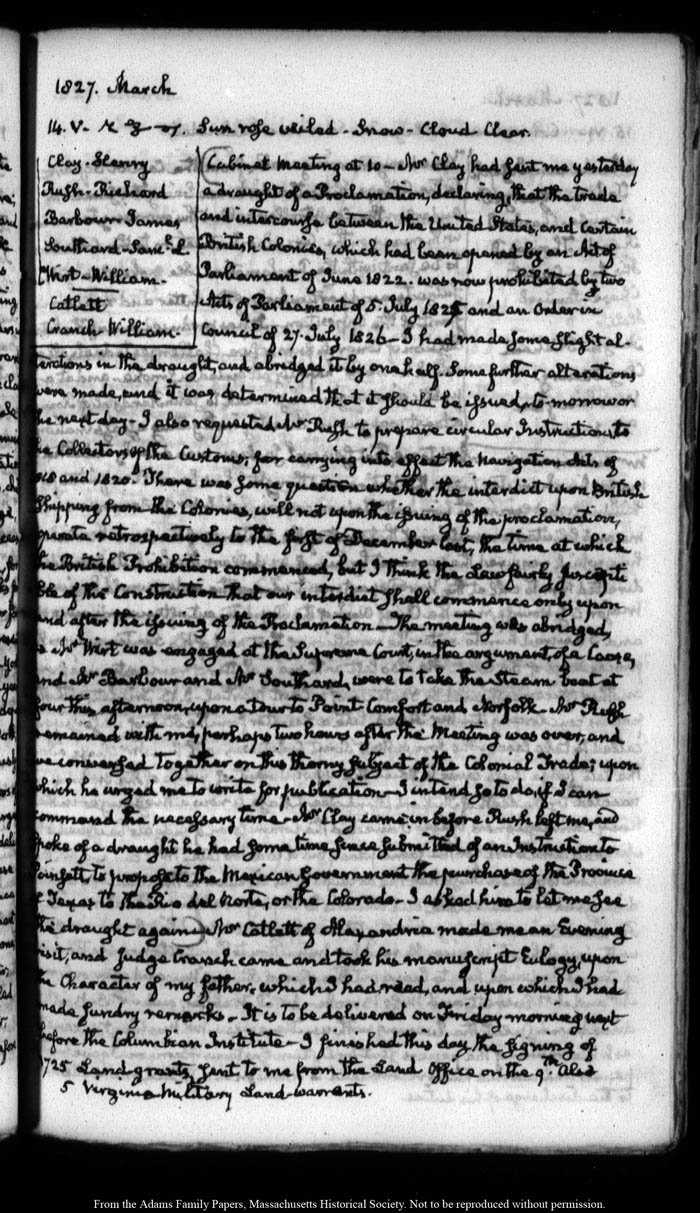 1827. March
14. V. Sun rose veiled - Snow - Cloud Clear.
Clay - Henry
Rush - Richard
Barbour - James
Southard - Sam.l L.
Wirt - William.
Catlett
Cranch - William.
Cabinet Meeting at 10 - Mr Clay had sent me yesterday
a draught of a Proclamation, declaring, that the trade
and intercourse between the United States, and certain
British Colonies, which had been opened by an Act of
Parliament of June 1822. was now prohibited by two
Acts of Parliament of 5. July 1825 and an Order in
Council of 27. July 1826 - I had made some slight al-
terations in the draught, and abridged it by one half. Some further alterations
were made, and it was determined that it should be issued, to-morrow or
he next day - I also requested Mr Rush to prepare circular Instructions to
he Collectors of the Customs; for carrying into effect the Navigation Acts of
818 and 1820. There was some question whether the interdict upon British
Shipping from the Colonies, will not upon the issuing of the proclamation,
operate retrospectively to the first of December last, the time at which
he British Prohibition commenced, but I think the Law fairly suscepti
ble of the Construction that our interdict shall commence only upon
and after the issuing of the Proclamation - The meeting was abridged,
s Mr Wirt was engaged at the Supreme Court, in the argument of a Cause,
and Mr Barbour and Mr Southard, were to take the Steam boat at
four this afternoon, upon a tour to Point Comfort and Norfolk - Mr Rush
remained with me, perhaps two hours after the Meeting was over, and
we conversed together on this thorny subject of the Colonial Trade; upon
which he urged me to write for publication - I intend so to do, if I can
command the necessary time - Mr Clay came in before Rush left me, and
spoke of a draught he had some time since submitted of an Instruction to
Poinsett, to propose to the Mexican Government the purchase of the Province
of Texas to the Rio del Norte, or the Colorado - I asked him to let me see
the draught again - Mr Catlett of Alexandria made me an Evening
visit, and Judge Cranch came and took his manuscript Eulogy, upon
the Character of my father, which I had read, and upon which I had
made sundry remarks - It is to be delivered on Friday morning next
before the Columbian Institute - I finished this day the signing of
1725 Land grants, sent to me from the Land Office on the 9.th Also
5 Virginia Military Land-warrants.
From the Adams Family Papers, Massachusetts Historical Society. Not to be reproduced without permission.